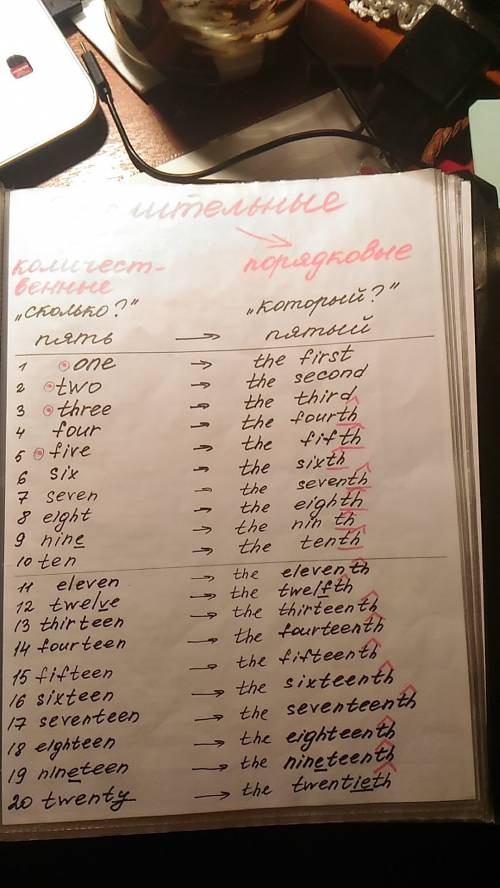 ительные
количест- порядковые
венные
„сколько?" „который?"
пять → пятый
1 one → the first
2 two → the second
3 three → the third
4 four → the fourth
5 five → the fifth
6 six → the sixth
7 seven → the seventh
8 eight → the eighth
9 nine → the nin th
10 ten → the tenth
11 eleven → the eleventh
12 twelve → the twelfth
13 thirteen → the thirteenth
14 fourteen → the fourteenth
15 fifteen → the fifteenth
16 sixteen → the sixteenth
17 seventeen → the seventeenth
18 eighteen → the eighteenth
19 nineteen → the nineteenth
20 twenty → the twentieth